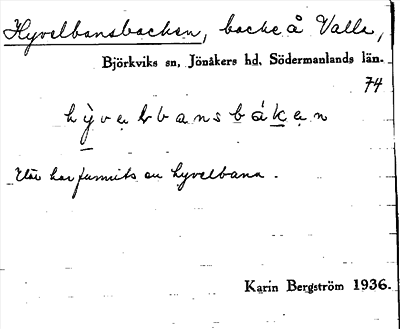 Hyvelbansbacken, backe å Valla,
Björkviks sn, Jönåkers hd, Södermanlands län.
74
hỳvelbansbáken
Här har funnits en hyvelbana.
Karin Bergström 1936.